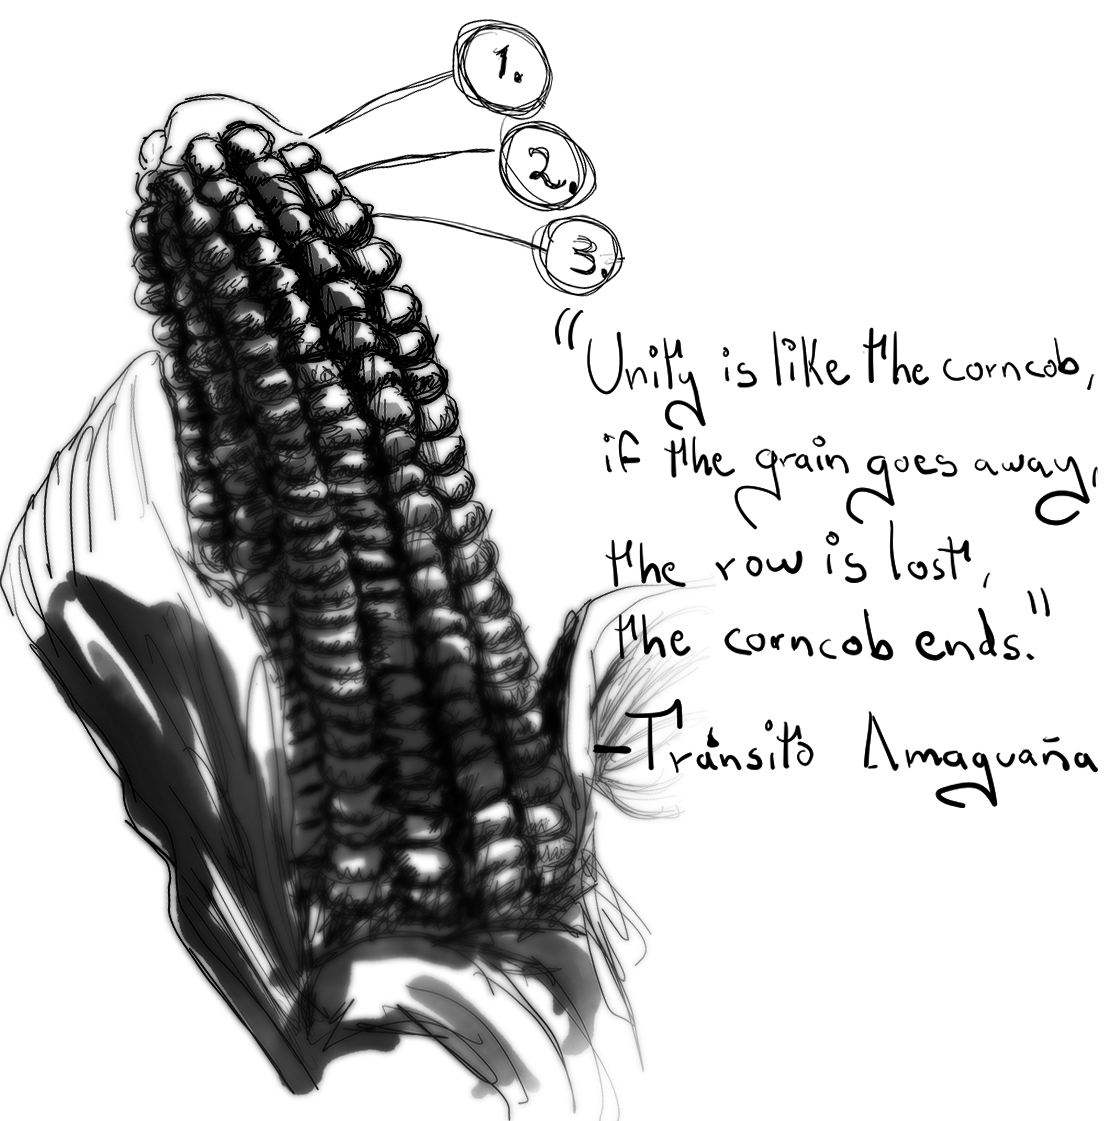 1.
2.
3.
"Unity is like the corncob,
if the grain goes away,
the row is lost,
the corncob ends."
-Tránsito Amaguaña